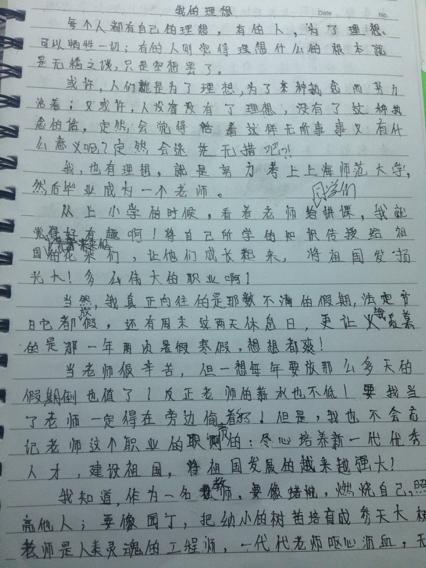 我的理想
Date No.
每个人都有自己的理想，有的人，为了理想，
可以牺牲一切；有的人则觉得理想什么的根本就
是无稽之谈，只是空想罢了。
或许，人们就是为了理想，为了某种执念而努力
活着；又或许，人没有没有了理想，没有了这种执
念的话，定然会觉得活着这样无所事事又有什
么意义呢？定然会迷先无措吧?!
我，也有理想，就是努力考上上海师范大学，
然后毕业成为一个老师。
同学们
从上小学的时候，看着老师给讲课，我就
觉得好有趣啊！将自己所学的知识传授给祖
国的花朵们，让他们成长起来，将祖国发扬
光大！多么伟大的职业啊！
当然，我真正向往的是那数不清的假期，法定节
日它都放假，还有周末这两天休息日，更让人羡慕
的是那一年两次暑假寒假，想想都爽！
当老师很辛苦，但一想每年要放那么多天的
假期倒也值了！反正老师的薪水也不低！要我当
了老师一定得在旁边偷着乐！但是，我也不会忘
记老师这个职业的职责的：尽心培养新一代优秀
人才，建设祖国，将祖国发展的越来越强大！
我知道，作为一名教师，要像蜡烛，燃烧自己，照
亮他人；要像园丁，把幼小的树苗培育成参天大树
老师是人类灵魂的工程师，一代代老师呕心沥血，无